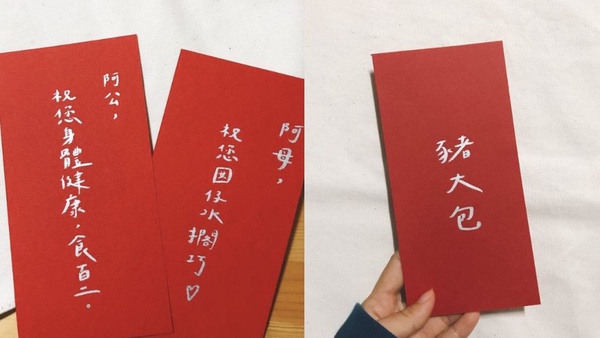 阿公，
祝您身體健康，食百二。
阿母，
祝您囝仔水擱巧♡
豬大包